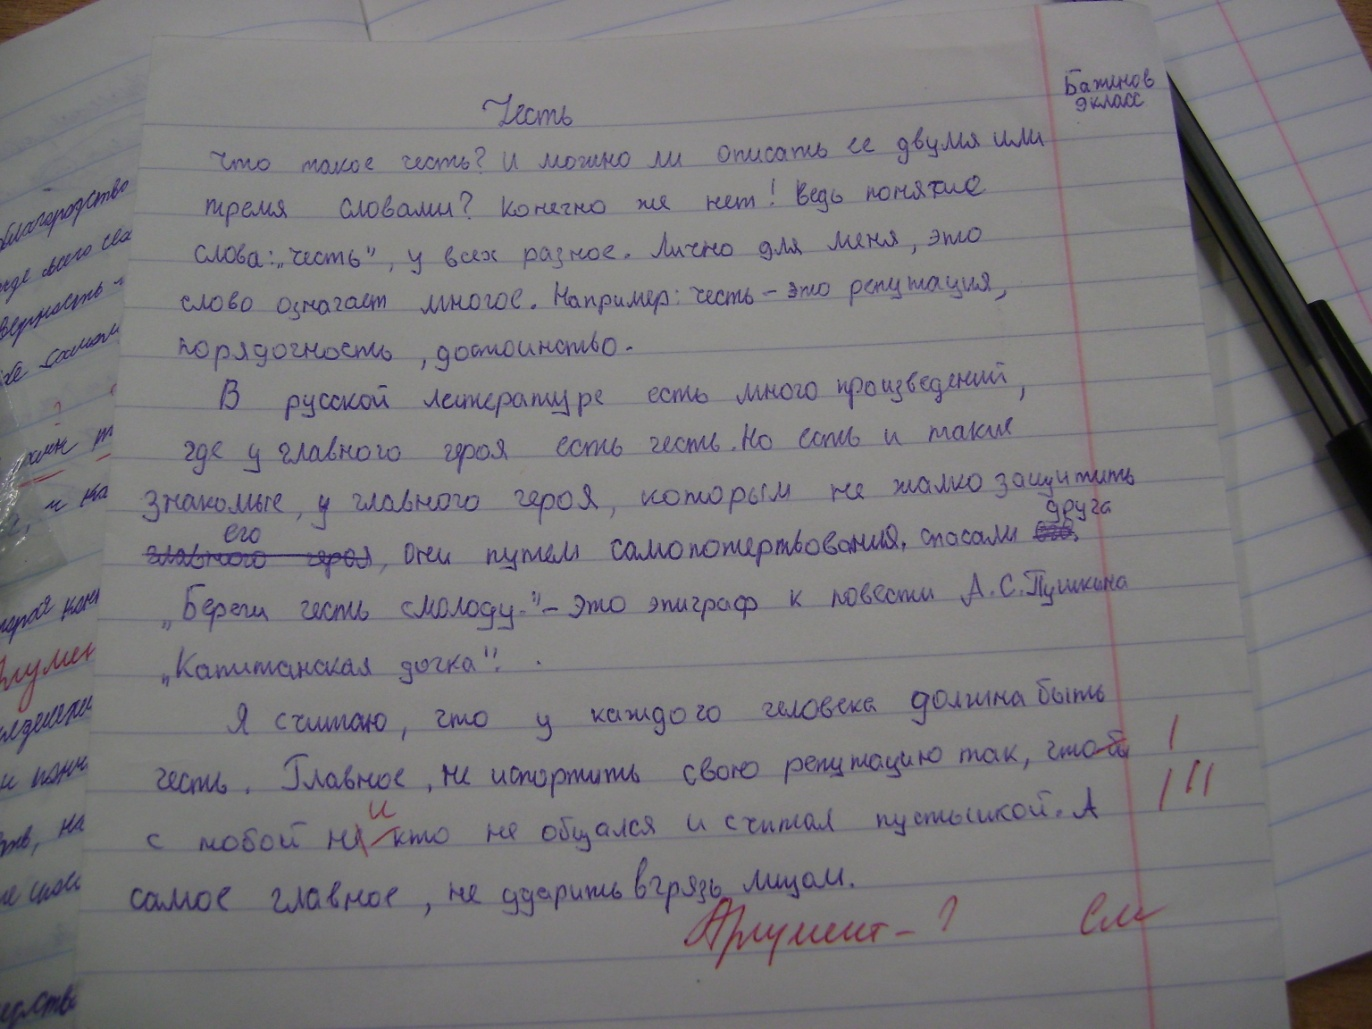 Бажинов
9 класс
Честь
Что такое честь? И можно ли описать её двумя или
тремя словами? Конечно же нет! Ведь понятие
слова: „честь", у всех разное. Лично для меня, это
слово означает многое. Например: честь – это репутация,
порядочность, достоинство.
В русской литературе есть много произведений,
где у главного героя есть честь. Но есть и такие
знакомые, у главного героя, которым не жалко защитить
его
главного героя, они путем самопожертвования, спасали друга
„Береги честь смолоду." – это эпиграф к повести А.С.Пушкина
„Капитанская дочка".
Я считаю, что у каждого человека должна быть
честь. Главное, не испортить свою репутацию так, чтобы
с тобой ни кто не общался и считал пустышкой. А
самое главное, не ударить в грязь лицом.
Аргумент – ?
См
благородство
верность